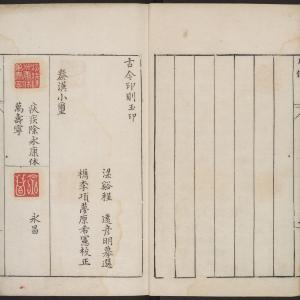 古今印則玉印
淏谿程　遠彥明摹選
檇李項夢原希憲校正
秦漢小璽
疢疾除永康休
萬壽寧
永昌